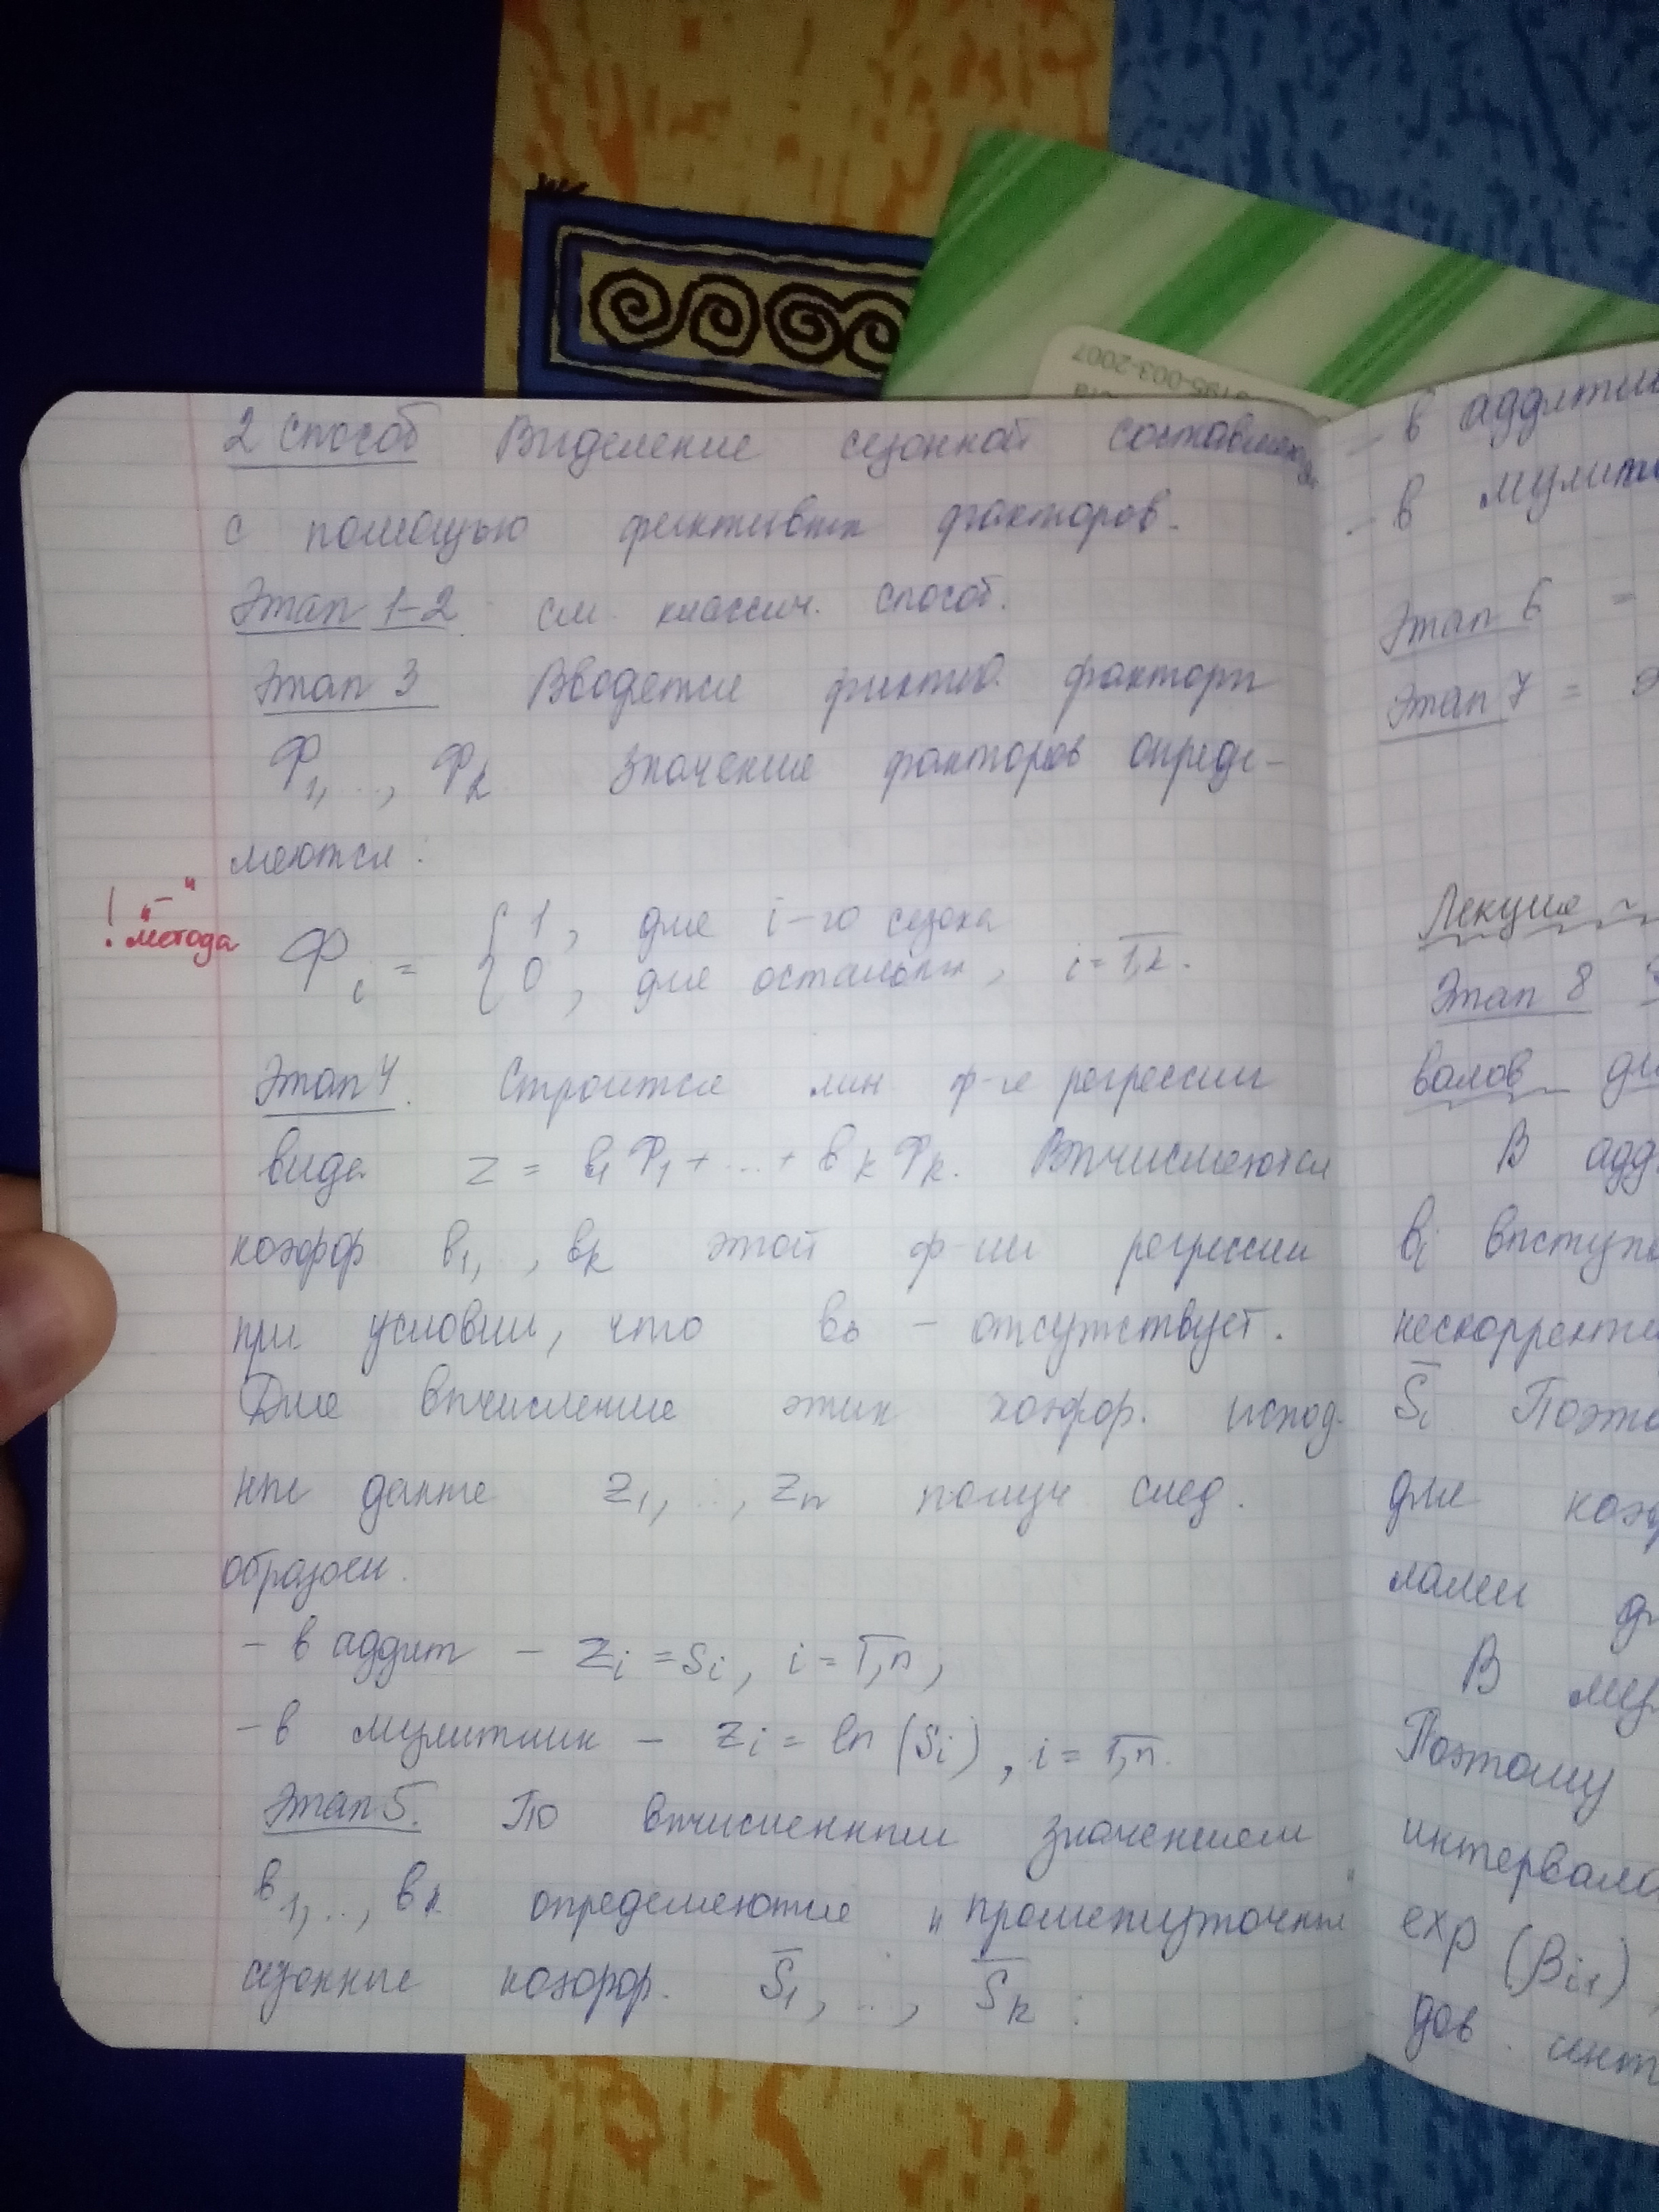 2 способ Выделение сезонной составляющ.
с помощью фиктивных факторов.
Этап 1-2 см. классич. способ.
Этап 3 Вводятся фиктив. факторы
Ф1, .., Фk Значения факторов опреде-
ляются:
! "–"
метода
Фi = { 1, для i-го сезона
0, для остальных, i = 1,k.
Этап 4. Строится лин ф-я регрессии
вида z = b1 Ф1 + ... + bk Фk. Вычисляются
коэфф b1, , bk этой ф-ии регрессии
при условии, что b0 – отсутствует.
Для вычисления этих коэфф. исход-
ные данные z1, .., zn получ след.
образом.
– в аддит – zi = si, i = 1,n,
– в мульитплик – zi = ln (si), i = 1,n.
Этап 5. По вычисленным значениям
b1, .., bk определяются "промежуточные"
сезонные коэфф. S1, ..., Sk :
– в аддитив
– в мульти
Этап 6 =
Этап 7 =
Лекция
Этап 8
валов
В адд
bi выступа
нескорректи
Si Поэто
для коэф
лами
В мул
Поэтому
интервала
exp (βi1),
дов. инт
6195-003-2007